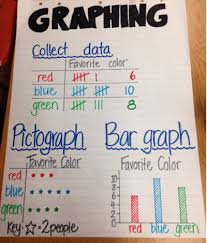 GRAPHING
Collect data
Favorite color
red 6
blue 10
green 8
Pictograph Bar graph
Favorite Color Favorite Color
red
blue
green
Key: ☆=2people
10
8
6
4
2
0
red blue green